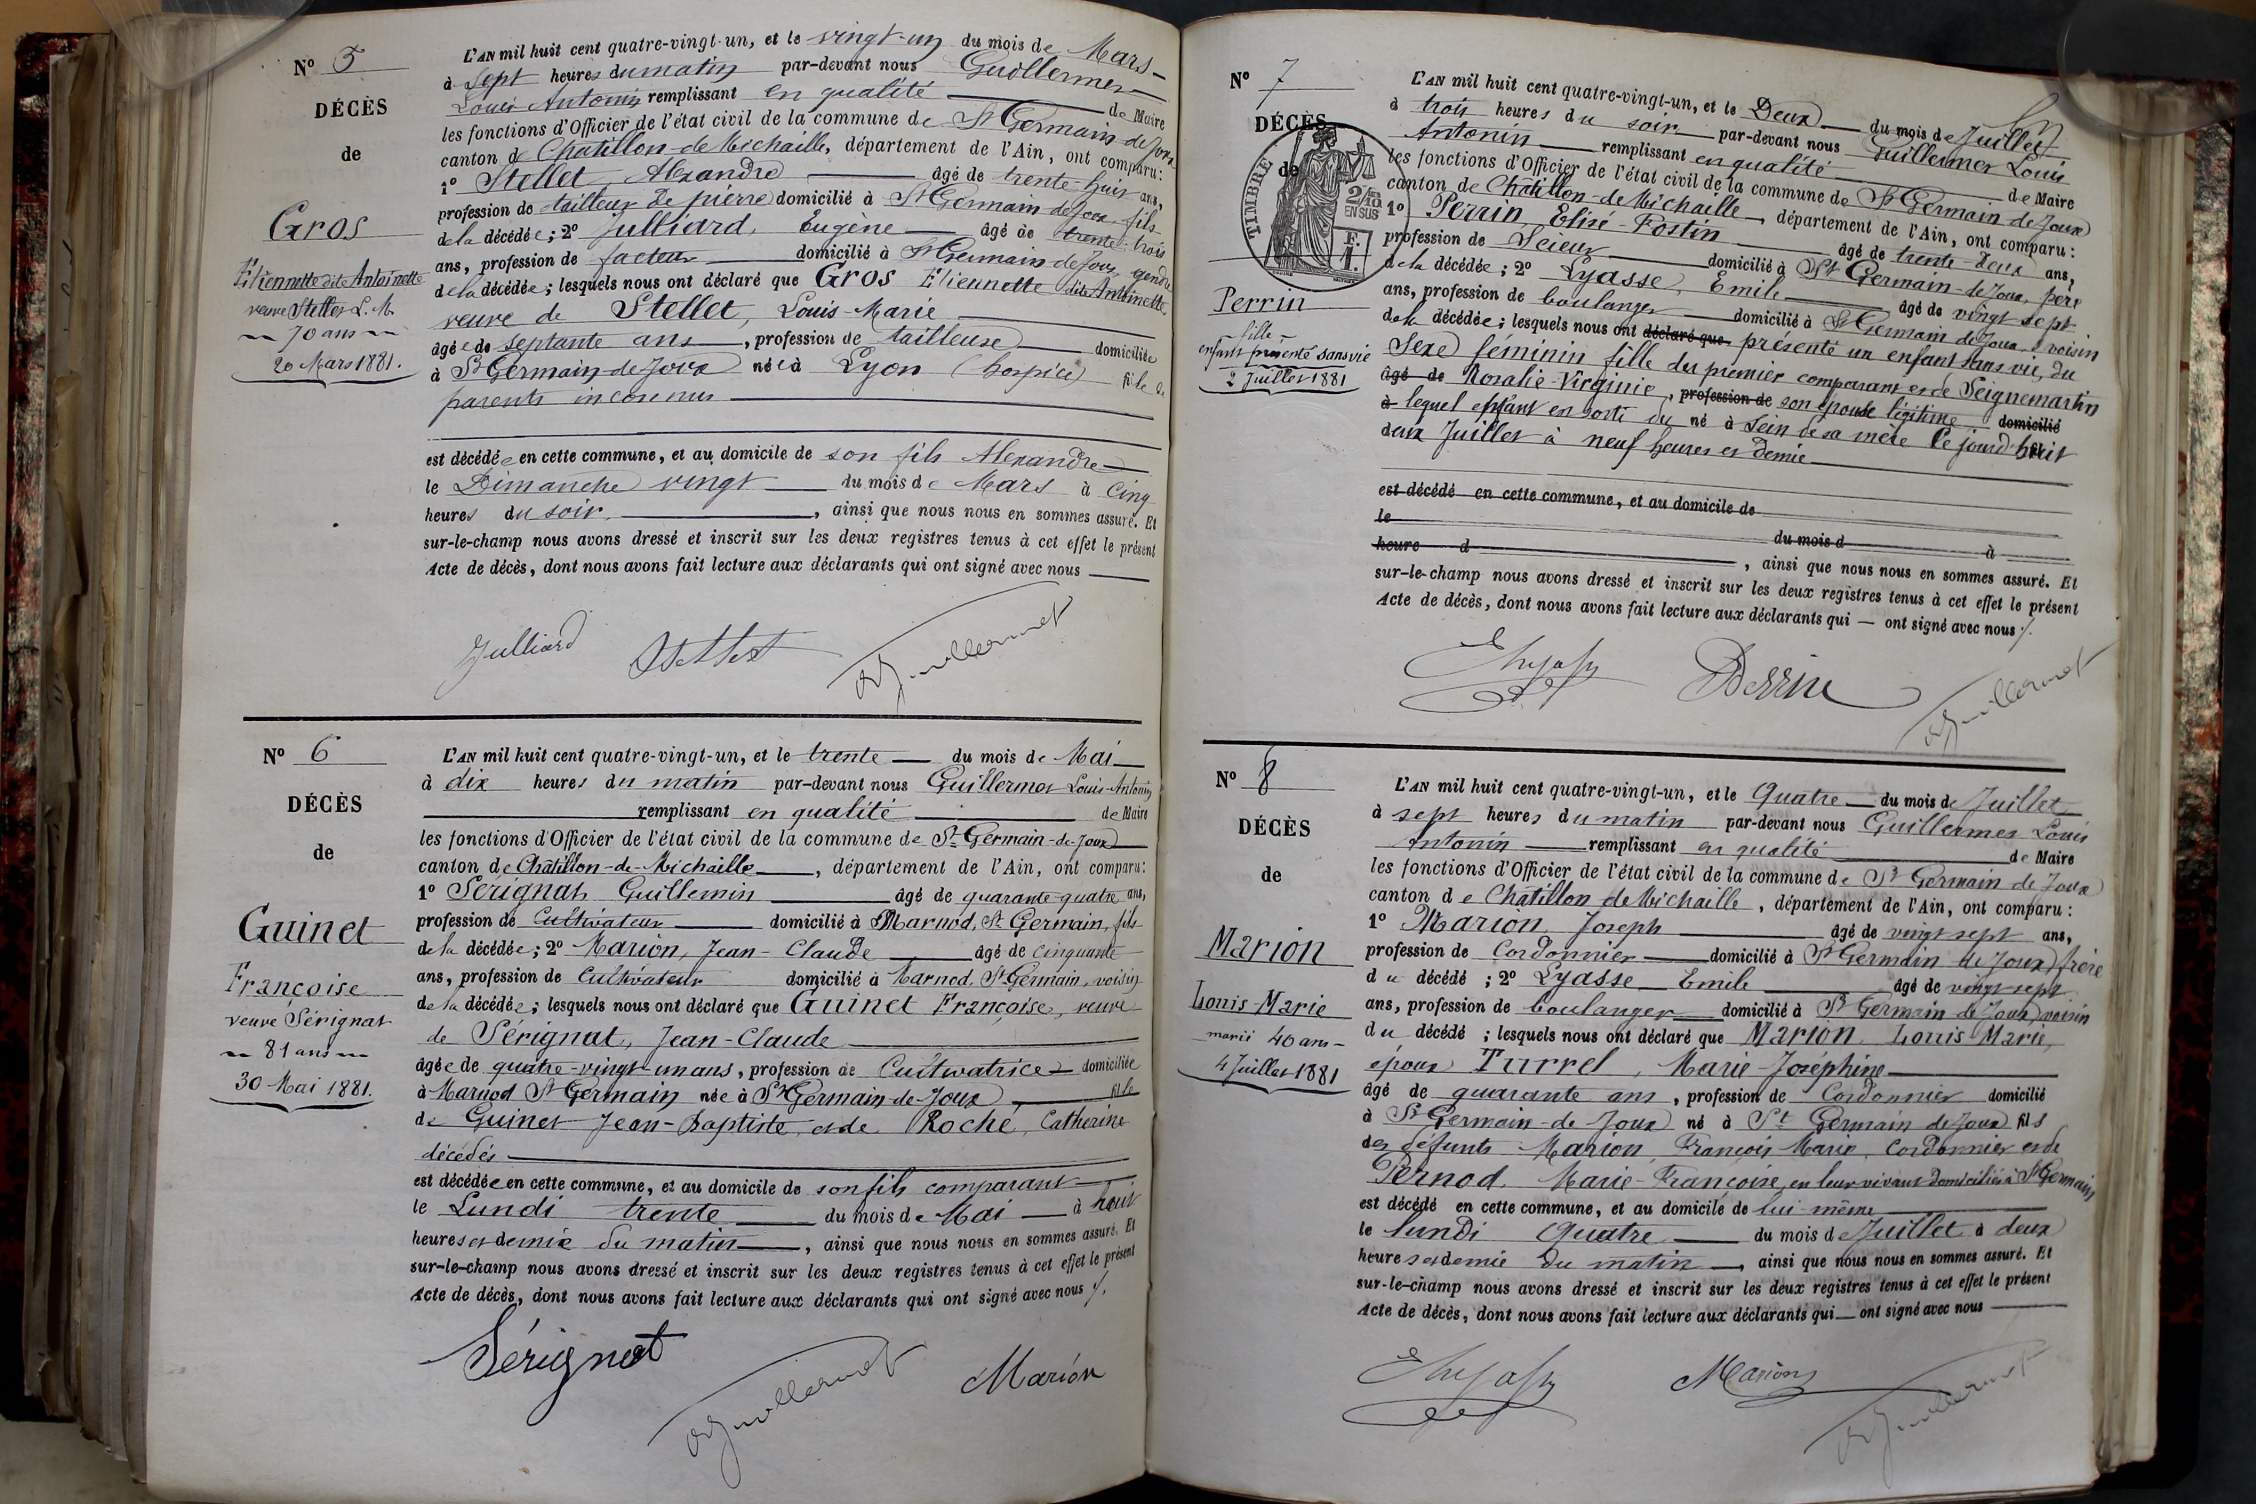 N° 5
DÉCÈS
de
Gros
Etiennette dite Antoinette
veuve Stellet L. M.
70 ans
20 Mars 1881.
L'AN mil huit cent quatre-vingt-un, et le vingt-un du mois de Mars
à sept heures du matin par-devant nous Guillermet
Louis Antonin remplissant en qualité de Maire
les fonctions d'Officier de l'état civil de la commune de St Germain de Joux
canton de Chatillon-de-Michaille, département de l'Ain, ont comparu:
1° Stellet Alexandre âgé de trente-huit ans,
profession de tailleur de pierre domicilié à St Germain de Joux, fils
de la décédée; 2° Julliard, Eugène âgé de trente-trois
ans, profession de facteur domicilié à St Germain de Joux, gendre
de la décédée; lesquels nous ont déclaré que Gros Etiennette dite Antoinette
veuve de Stellet, Louis-Marie
âgée de septante ans, profession de tailleuse domiciliée
à St Germain-de-Joux née à Lyon (hospice) fille de
parents inconnus
est décédée en cette commune, et au domicile de son fils Alexandre
le Dimanche vingt du mois de Mars à cinq
heures du soir, ainsi que nous nous en sommes assuré. Et
sur-le-champ nous avons dressé et inscrit sur les deux registres tenus à cet effet le présent
Acte de décès, dont nous avons fait lecture aux déclarants qui ont signé avec nous
Julliard Stellet Guillermet
N° 6
DÉCÈS
de
Guinet
Françoise
veuve Sérignat
81 ans
30 Mai 1881.
L'AN mil huit cent quatre-vingt-un, et le trente du mois de Mai
à dix heures du matin par-devant nous Guillermet Louis-Antonin
remplissant en qualité de Maire
les fonctions d'Officier de l'état civil de la commune de St Germain-de-Joux
canton de Châtillon-de-Michaille, département de l'Ain, ont comparu:
1° Sérignat, Guillemin âgé de quarante-quatre ans,
profession de Cultivateur domicilié à Marnod, St Germain, fils
de la décédée; 2° Marion, Jean-Claude âgé de cinquante
ans, profession de Cultivateur domicilié à Marnod, St Germain, voisin
de la décédée; lesquels nous ont déclaré que Guinet Françoise, veuve
de Sérignat, Jean-Claude
âgée de quatre-vingt-un ans, profession de Cultivatrice domiciliée
à Marnod St Germain née à St Germain-de-Joux fille
de Guinet Jean-Baptiste et de Roche, Catherine
décédés
est décédée en cette commune, et au domicile de son fils comparant
le Lundi trente du mois de Mai à huit
heures et demie du matin, ainsi que nous nous en sommes assuré. Et
sur-le-champ nous avons dressé et inscrit sur les deux registres tenus à cet effet le présent
Acte de décès, dont nous avons fait lecture aux déclarants qui ont signé avec nous ./.
Sérignat Guillermet Marion
N° 7
DÉCÈS
de
TIMBRE
2/10
EN SUS
F.
1.
Perrin
fille
enfant présenté sans vie
2 Juillet 1881
L'AN mil huit cent quatre-vingt-un, et le Deux du mois de Juillet
à trois heures du soir par-devant nous Guillermet Louis
Antonin remplissant en qualité de Maire
les fonctions d'Officier de l'état civil de la commune de St Germain de Joux
canton de Châtillon-de-Michaille, département de l'Ain, ont comparu:
1° Perrin, Elisé-Fostin âgé de trente-deux ans,
profession de Scieur domicilié à St Germain-de-Joux, père
de la décédée; 2° Lyasse, Emile âgé de vingt sept
ans, profession de boulanger domicilié à St Germain de Joux, voisin
de la décédée; lesquels nous ont déclaré que présenté un enfant sans vie, du
sexe féminin fille du premier comparant et de Seignemartin
âgé de Rosalie-Virginie, profession de son épouse légitime domicilié
à lequel enfant est sorti du né à sein de sa mère le jourd'huit
deux Juillet à neuf heures et demie
est décédé en cette commune, et au domicile de
le du mois d à
heure d, ainsi que nous nous en sommes assuré. Et
sur-le-champ nous avons dressé et inscrit sur les deux registres tenus à cet effet le présent
Acte de décès, dont nous avons fait lecture aux déclarants qui — ont signé avec nous ./.
E Lyasse Perrin Guillermet
N° 8
DÉCÈS
de
Marion
Louis-Marie
marié 40 ans
4 Juillet 1881
L'AN mil huit cent quatre-vingt-un, et le Quatre du mois de Juillet
à sept heures du matin par-devant nous Guillermet Louis
Antonin remplissant en qualité de Maire
les fonctions d'Officier de l'état civil de la commune de St Germain de Joux
canton de Châtillon de Michaille, département de l'Ain, ont comparu:
1° Marion Joseph âgé de vingt sept ans,
profession de Cordonnier domicilié à St Germain de Joux, frère
du décédé; 2° Lyasse Emile âgé de vingt-sept
ans, profession de boulanger domicilié à St Germain de Joux, voisin
du décédé; lesquels nous ont déclaré que Marion Louis Marie,
époux Turrel, Marie-Joséphine
âgé de quarante ans, profession de Cordonnier domicilié
à St Germain-de-Joux né à St Germain de Joux fils
des défunts Marion, François Marie, Cordonnier et de
Pernod Marie-Françoise, en leur vivant domiciliés à St Germain
est décédé en cette commune, et au domicile de lui-même
le lundi Quatre du mois de Juillet à deux
heures et demie du matin, ainsi que nous nous en sommes assuré. Et
sur-le-champ nous avons dressé et inscrit sur les deux registres tenus à cet effet le présent
Acte de décès, dont nous avons fait lecture aux déclarants qui — ont signé avec nous
E Lyasse Marion Guillermet